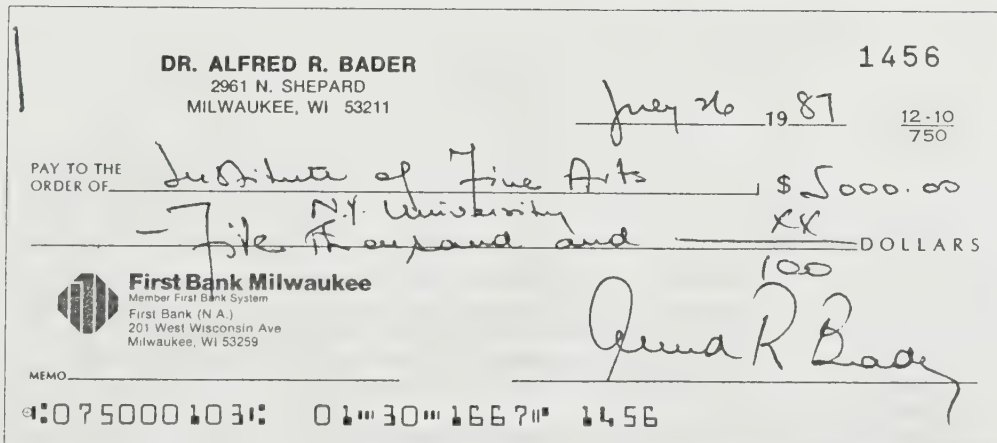 1456
DR. ALFRED R. BADER
2961 N. SHEPARD
MILWAUKEE, WI 53211
July 26 1987
12-10
750
PAY TO THE
ORDER OF Institute of Fine Arts $ 5000.00
N.Y. University
- Five Thousand and XX
100 DOLLARS
First Bank Milwaukee
Member First Bank System
First Bank (N.A.)
201 West Wisconsin Ave
Milwaukee, WI 53259
Alfred R Bader
MEMO
⑆075000103⑆ 01⑈30⑈1667⑈ 1456